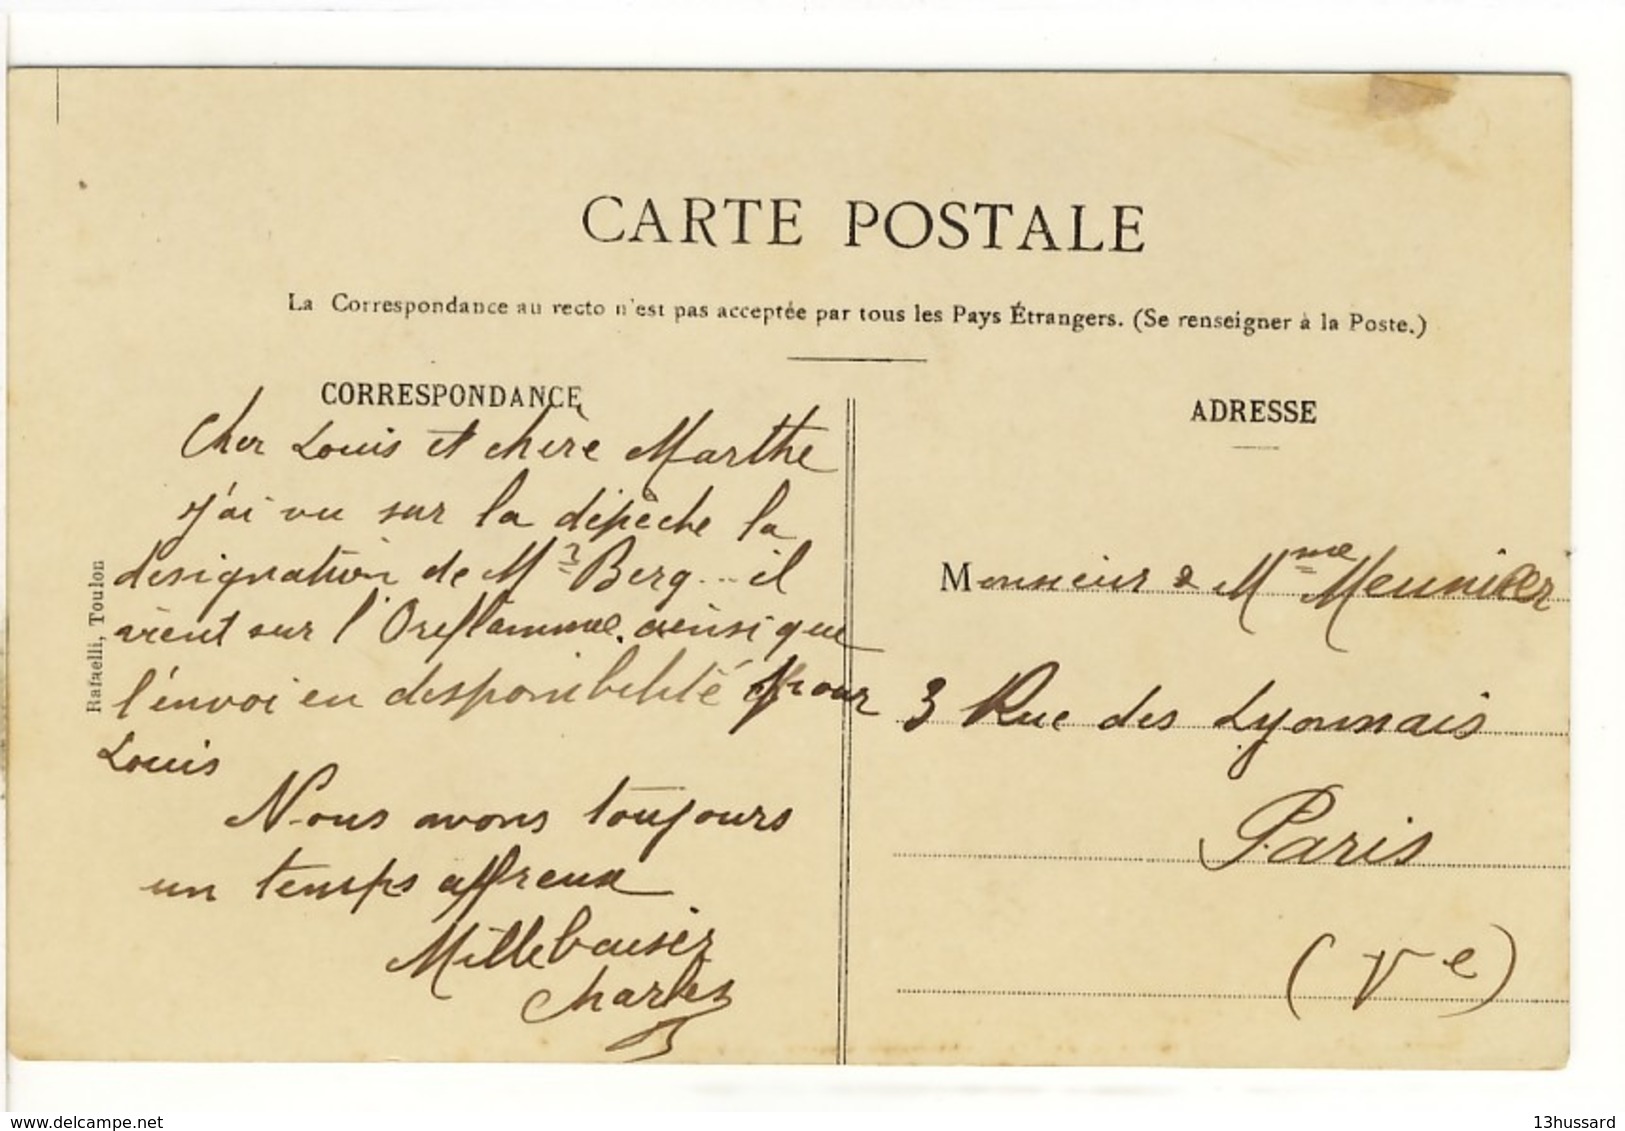 CARTE POSTALE
La Correspondance au recto n'est pas acceptée par tous les Pays Étrangers. (Se renseigner à la Poste.)
CORRESPONDANCE
Cher Louis et chère Marthe
j'ai vu sur la dépêche la
désignation de Mr Berg... il
vient sur l'Oreflamme. ainsi que
l'envoi en desponibilité pour
Louis
Nous avons toujours
un temps affreux
Mille baisers
Charles
Rafaelli, Toulon
ADRESSE
Monsieur & Mme Meunier
3 Rue des Lyonnais
Paris
(Ve)
www.delcampe.net
13hussard